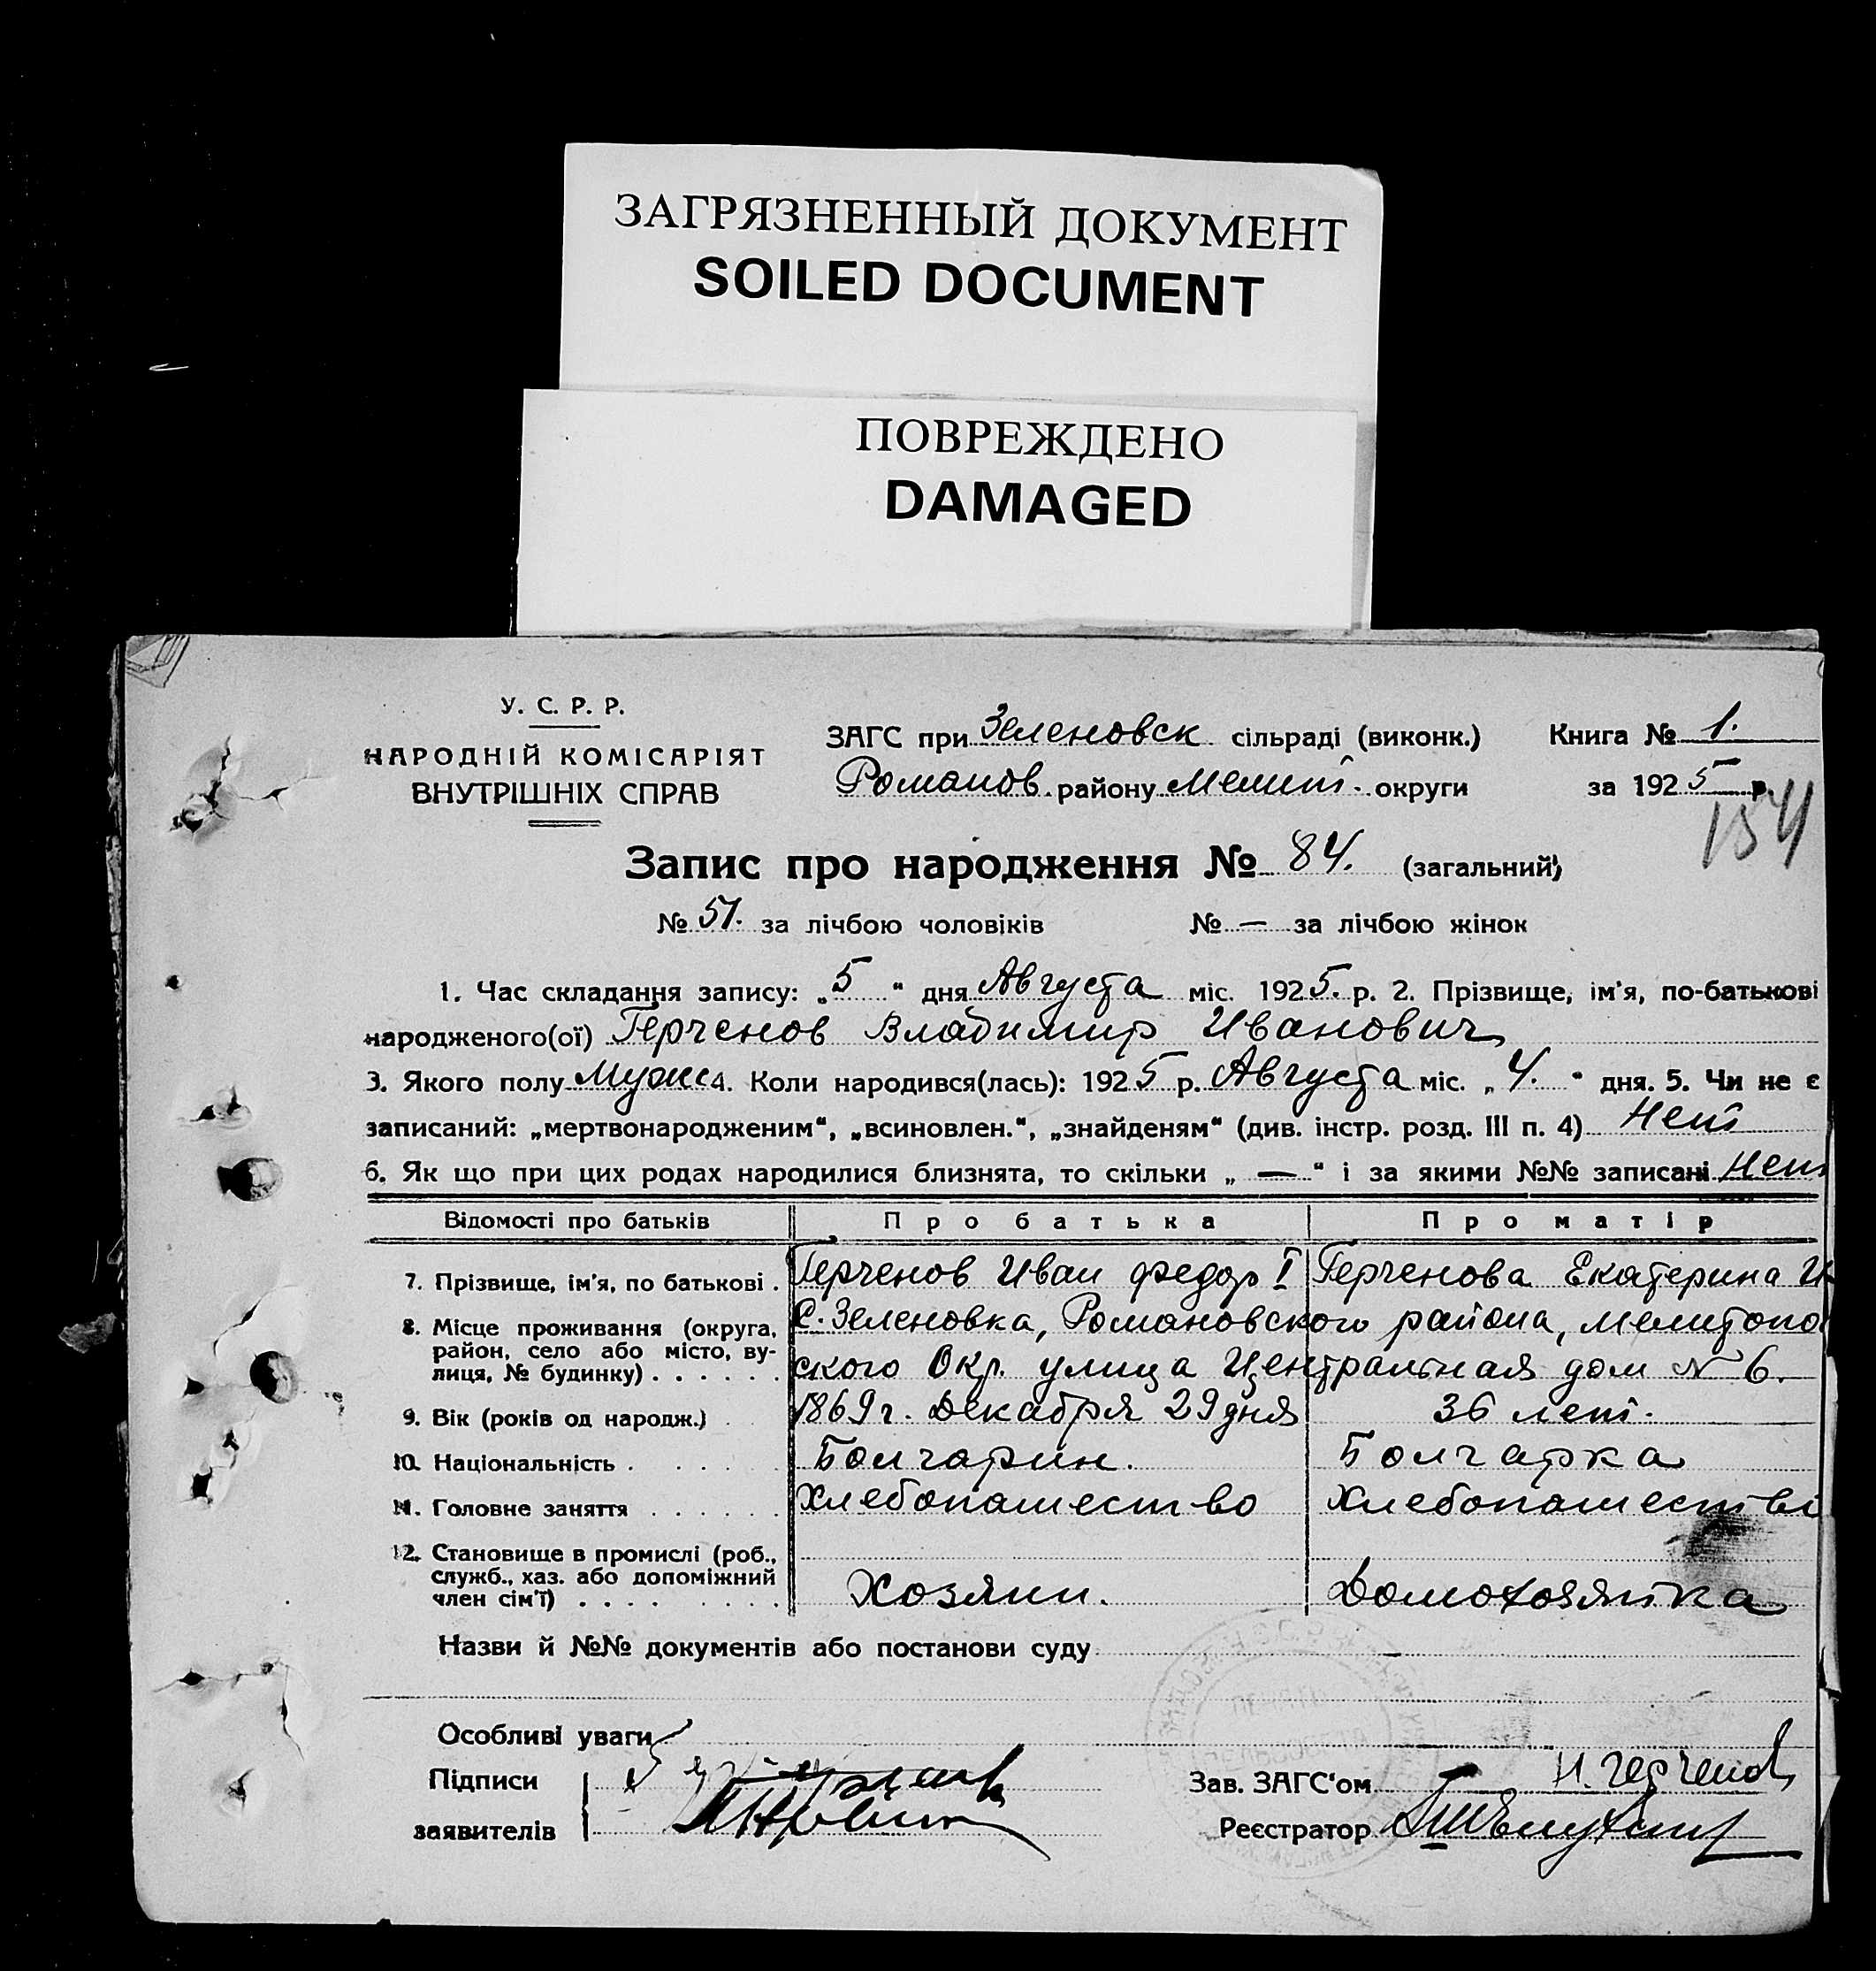 ЗАГРЯЗНЕННЫЙ ДОКУМЕНТ
SOILED DOCUMENT
ПОВРЕЖДЕНО
DAMAGED
У. С. Р. Р.
НАРОДНІЙ КОМІСАРІЯТ
ВНУТРІШНІХ СПРАВ
ЗАГС при Зеленовск сільраді (виконк.) Книга № 1.
Романов. району Мелит. округи за 1925 р.
154
Запис про народження № 84. (загальний)
№ 51. за лічбою чоловіків № — за лічбою жінок
1. Час складання запису: „5“ дня Августа міс. 1925. р. 2. Прізвище, ім'я, по-батькові
народженого(ої) Герченов Владимир Иванович
3. Якого полу Мужс 4. Коли народився(лась): 1925 р. Августа міс. „4.“ дня. 5. Чи не є
записаний: „мертвонародженим“, „всиновлен.“, „знайденям“ (див. інстр. розд. III п. 4) Нет
6. Як що при цих родах народилися близнята, то скільки „—“ і за якими №№ записані Нет
Відомості про батьків Про батька Про матір
7. Прізвище, ім'я, по батькові . Герченов Иван Федор I Герченова Екатерина И
8. Місце проживання (округа, район, село або місто, вулиця, № будинку) . . . . . . С. Зеленовка, Романовского района, Мелитопо
ского Окр. улица Центральная дом № 6.
9. Вік (років од народж.) 1869 г. Декабря 29 дня 36 лет.
10. Національність . . . . Болгарин. Болгарка
11. Головне заняття . . . . . . Хлебопашество Хлебопашестві
12. Становище в промислі (роб., служб., хаз. або допоміжний член сім'ї) . . . . Хозяин. Домохозяйка
Назви й №№ документів або постанови суду
Особливі уваги
Підписи Зав. ЗАГС'ом Н. Герченов
заявителів Реєстратор